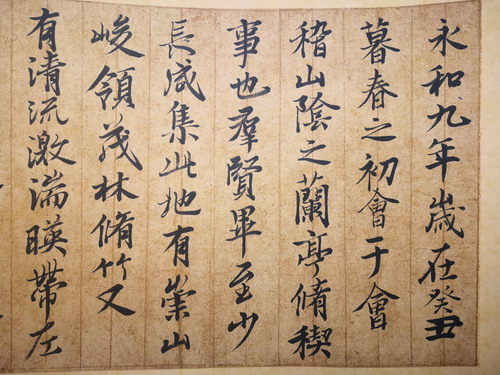 永和九年歲在癸丑
暮春之初會于會
稽山陰之蘭亭脩禊
事也羣賢畢至少
長咸集此地有崇山
峻領茂林脩竹又
有清流激湍暎帶左